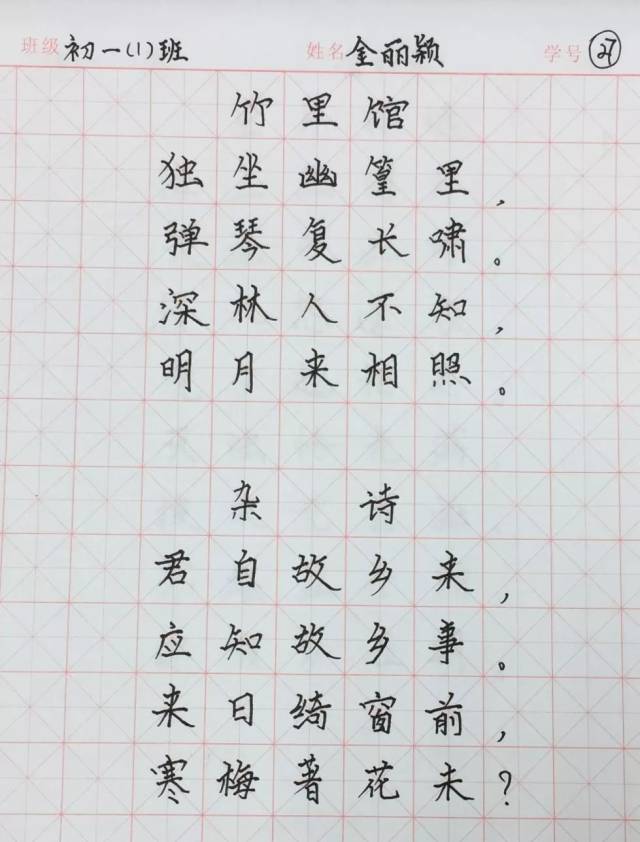 班级 初一(1)班 姓名 金丽颖 学号 27
竹里馆
独坐幽篁里,
弹琴复长啸。
深林人不知,
明月来相照。
杂诗
君自故乡来,
应知故乡事。
来日绮窗前,
寒梅著花未?